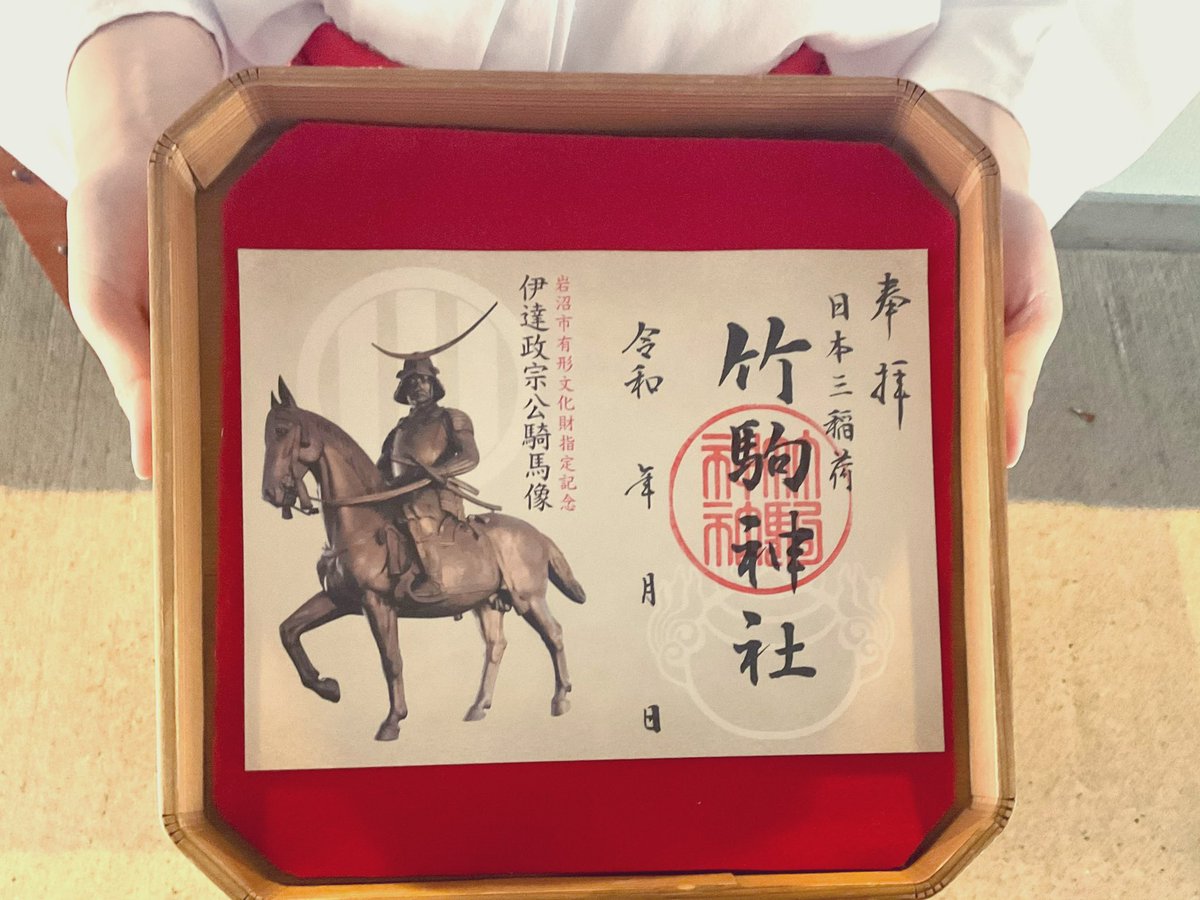 奉拝
日本三稲荷
竹駒神社
竹駒神社
令和 年 月 日
岩沼市有形文化財指定記念
伊達政宗公騎馬像